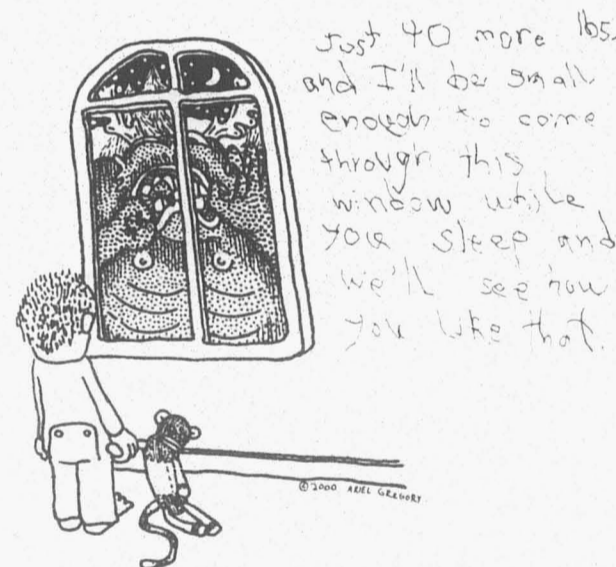 Just 40 more lbs.
and I'll be small
enough to come
through this
window while
you sleep and
we'll see how
you like that.
©2000 ARIEL GREGORY